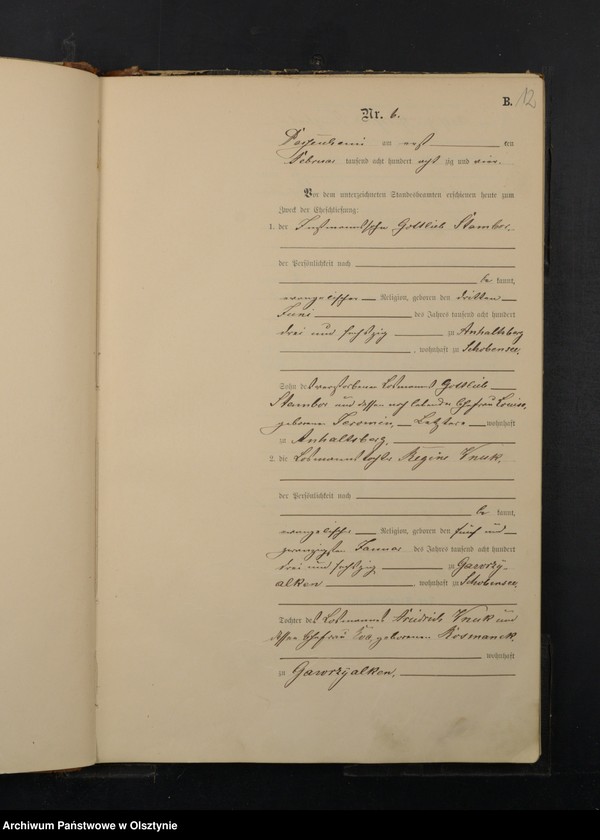 B. 12
Nr. 6.
am erst ten
Februar tausend acht hundert acht zig und vier.
Vor dem unterzeichneten Standesbeamten erschienen heute zum
Zweck der Eheschließung:
1. der Instmannssohn Gottlieb Stambor,
der Persönlichkeit nach
be kannt,
evangelischer Religion, geboren den dritten
Juni des Jahres tausend acht hundert
drei und sechszig zu Anhaltsberg
, wohnhaft zu Schobensee,
Sohn des verstorbenen Losmanns Gottlieb
Stambor und dessen noch lebender Ehefrau Louise,
geborenen Jeromin, Letztere wohnhaft
zu Anhaltsberg,
2. die Losmannstochter Regine Wnuk,
der Persönlichkeit nach
be kannt,
evangelischer Religion, geboren den fünf und
zwanzigsten Januar des Jahres tausend acht hundert
drei und sechszig zu Gawrzy-
alken, wohnhaft zu Schobensee,
Tochter des Losmanns Friedrich Wnuk und
dessen Ehefrau Eva, geborenen Rosmanek,
wohnhaft
zu Gawrzyalken,
Archiwum Państwowe w Olsztynie